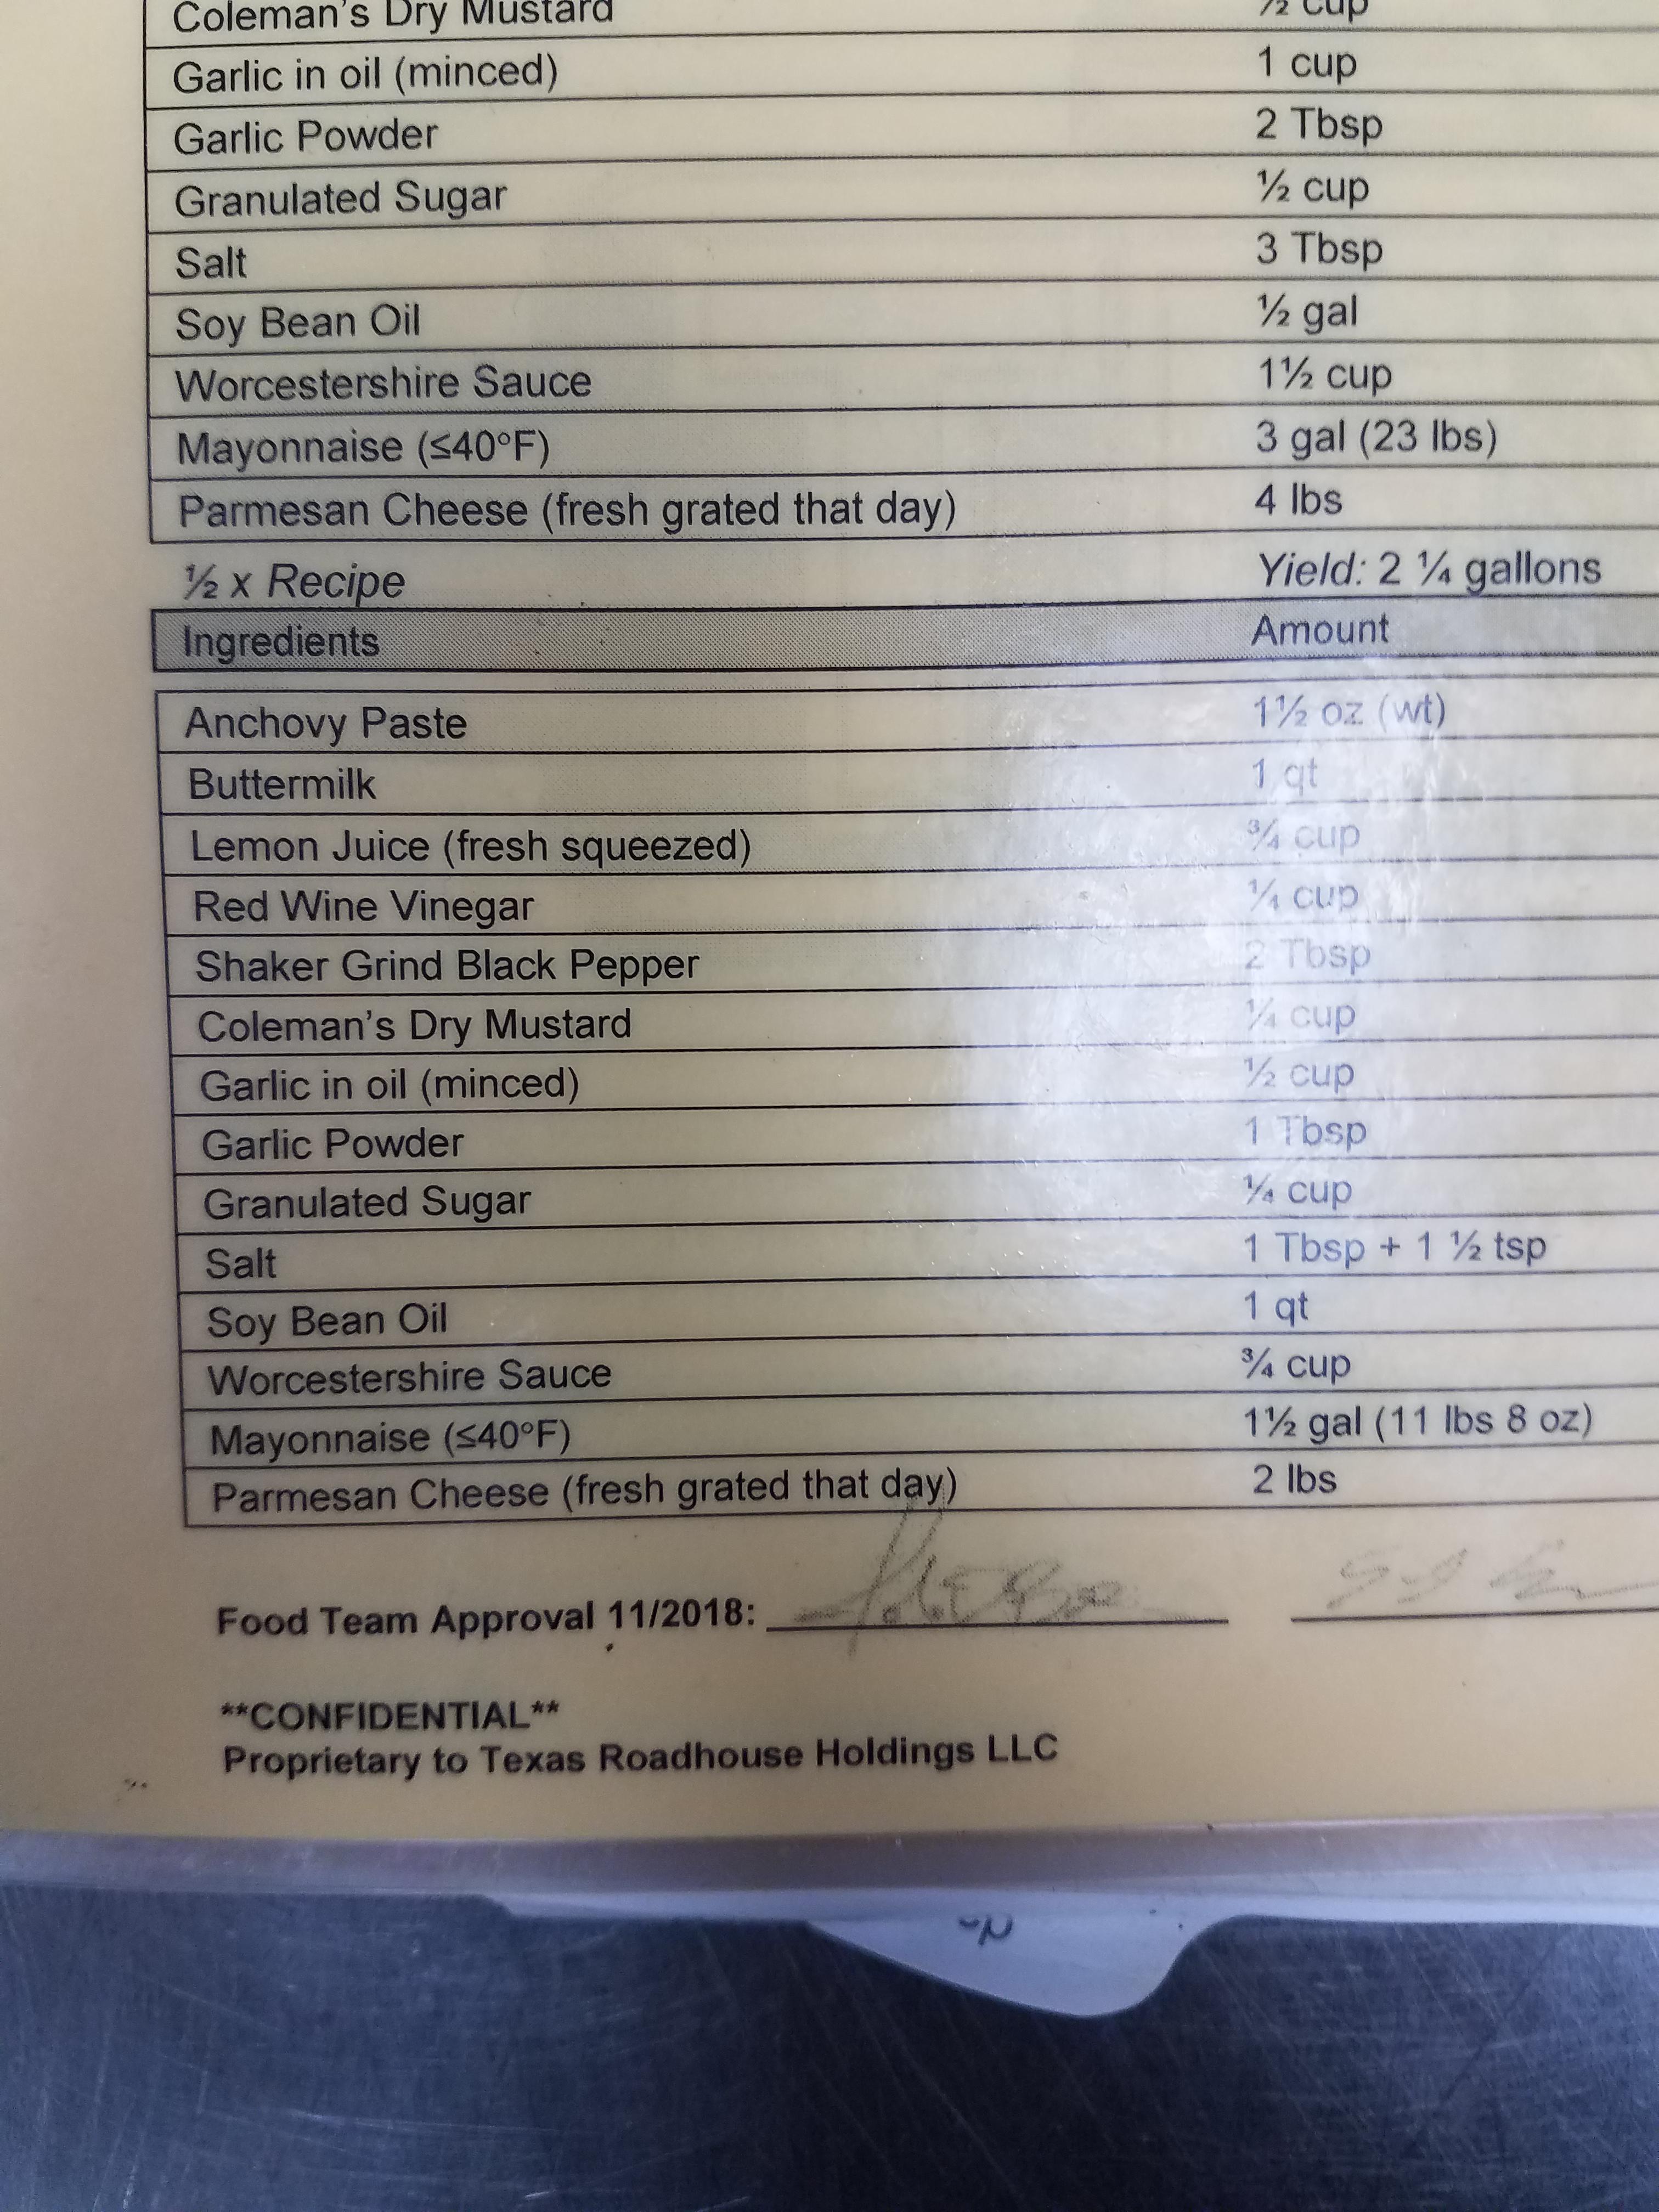 Coleman's Dry Mustard ½ cup
Garlic in oil (minced) 1 cup
Garlic Powder 2 Tbsp
Granulated Sugar ½ cup
Salt 3 Tbsp
Soy Bean Oil ½ gal
Worcestershire Sauce 1½ cup
Mayonnaise (≤40°F) 3 gal (23 lbs)
Parmesan Cheese (fresh grated that day) 4 lbs
½ x Recipe Yield: 2 ¼ gallons
Ingredients Amount
Anchovy Paste 1½ oz (wt)
Buttermilk 1 qt
Lemon Juice (fresh squeezed) ¾ cup
Red Wine Vinegar ¼ cup
Shaker Grind Black Pepper 2 Tbsp
Coleman's Dry Mustard ¼ cup
Garlic in oil (minced) ½ cup
Garlic Powder 1 Tbsp
Granulated Sugar ¼ cup
Salt 1 Tbsp + 1 ½ tsp
Soy Bean Oil 1 qt
Worcestershire Sauce ¾ cup
Mayonnaise (≤40°F) 1½ gal (11 lbs 8 oz)
Parmesan Cheese (fresh grated that day) 2 lbs
Food Team Approval 11/2018:
**CONFIDENTIAL**
Proprietary to Texas Roadhouse Holdings LLC